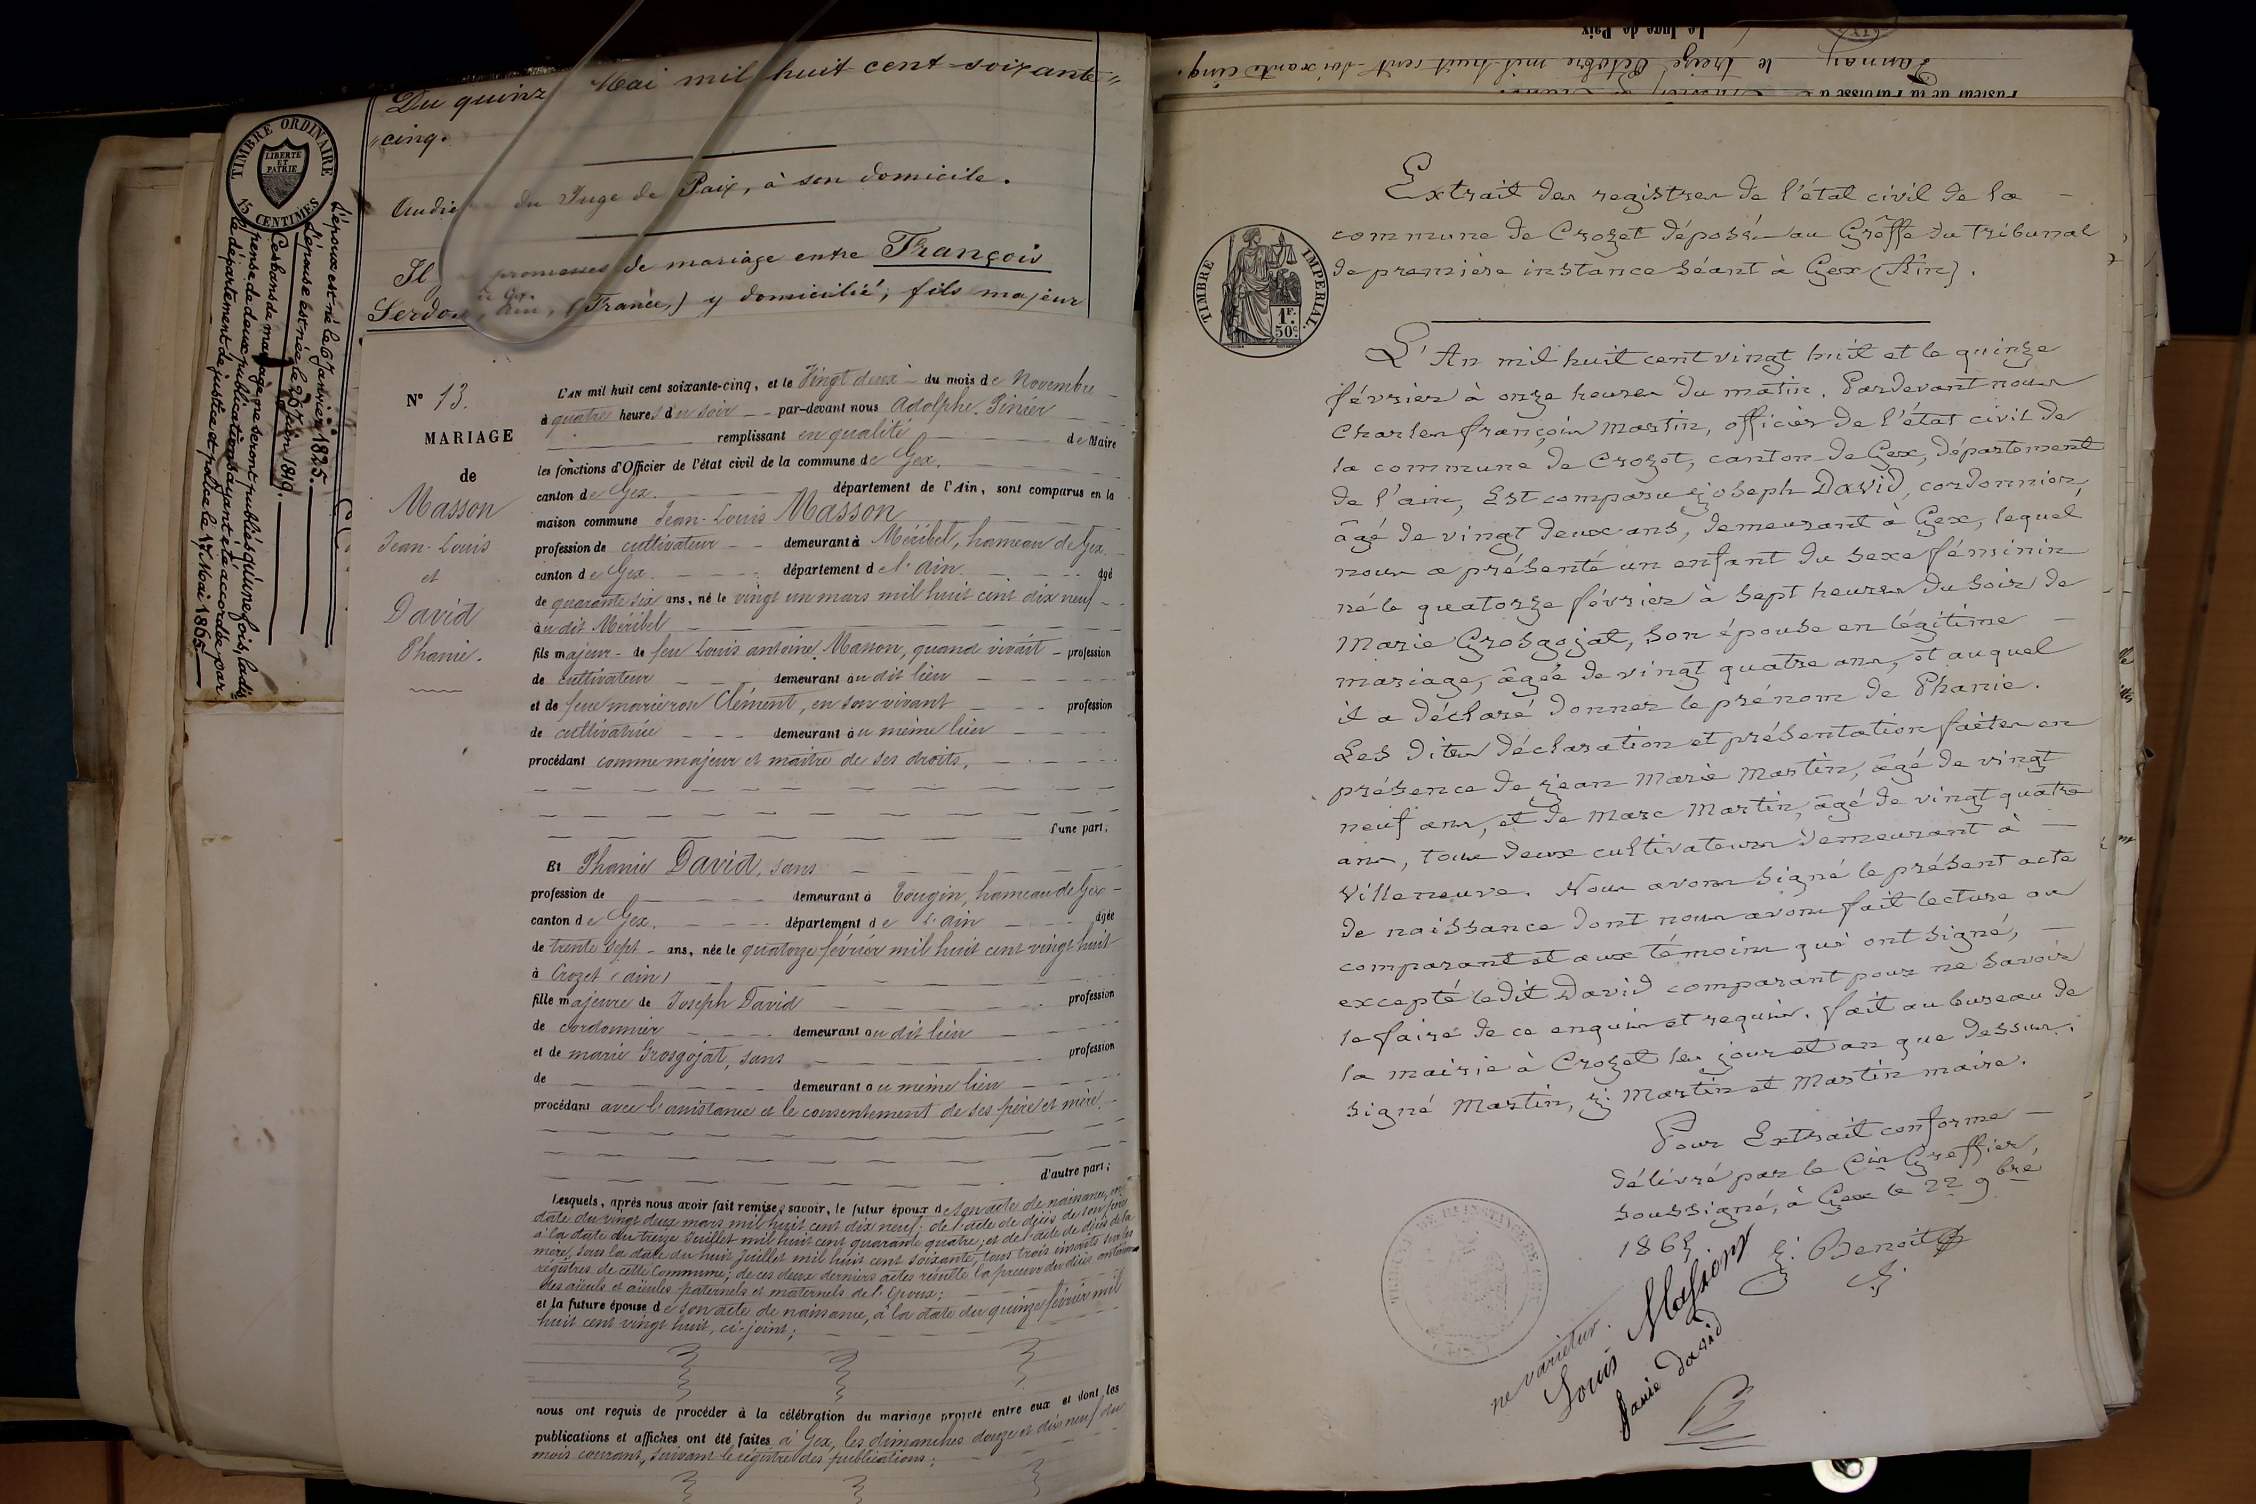 Du quinz Mai mil huit cent soixante-
cinq.
Audie du Juge de Paix, à son domicile.
Il promesses de mariage entre François
Ain, (France,) y domicilié, fils majeur
TIMBRE ORDINAIRE
LIBERTE
ET
PATRIE
15 CENTIMES
L'épouse est née le 20 Juin 1819.
Les bans de mariage ne seront publiés qu'une fois, la dis-
pense de deux publications ayant été accordée par
le département de justice et police le 17 Mai 1865.
N° 13.
MARIAGE
de
Masson
Jean-Louis
et
David
Phanie.
L'AN mil huit cent soixante-cinq, et le Vingt deux du mois de Novembre
à quatre heures du soir par-devant nous Adolphe Pinier
remplissant en qualité de Maire
les fonctions d'Officier de l'état civil de la commune de Gex.
canton de Gex. département de l'Ain, sont comparus en la
maison commune Jean-Louis Masson
profession de cultivateur demeurant à Méribel, hameau de Gex
canton de Gex département de l'ain âgé
de quarante six ans, né le vingt un mars mil huit cent dix neuf
àu dit Méribel
fils majeur de feu Louis antoine Masson, quand vivait profession
de cultivateur demeurant au dit lieu
et de feue marie rose Clément, en son vivant profession
de cultivatrice demeurant au même lieu
procédant comme majeur et maître de ses droits,
d'une part;
Et Phanie David, sans
profession de demeurant à Tougin, hameau de Gex
canton de Gex. département de l'ain âgée
de trente sept ans, née le quatorze février mil huit cent vingt huit
à Crozet (ain)
fille majeure de Joseph David profession
de cordonnier demeurant au dit lieu
et de marie Grosgojat, sans profession
de demeurant au même lieu
procédant avec l'assistance et le consentement de ses père et mère.
d'autre part;
Lesquels, après nous avoir fait remise, savoir, le futur époux de son acte de naissance, en
date du vingt deux mars mil huit cent dix neuf; de l'acte de décès de son père
à la date du treize Juillet mil huit cent quarante quatre; et de l'acte de décès de la
mère, sous la date du huit Juillet mil huit cent soixante, tous trois inscrits sur les
régistres de cette Commune; de ces deux derniers actes résulte la preuve du décès antérieur
des aïeuls et aïeules paternels et maternels de l'époux;
et la future épouse de son acte de naissance, à la date du quinze février mil
huit cent vingt huit, ci-joint;
nous ont requis de procéder à la célébration du mariage projeté entre eux et dont les
publications et affiches ont été faites à Gex, les dimanches douze et dix neuf du
mois courant, suivant le régistre des publications;
Le Juge de Paix
Lannay le treize Octobre mil huit cent soixante cinq.
Pasteur de la Paroisse d
TIMBRE IMPERIAL.
1F.
50c.
Extrait des registres de l'état civil de la
commune de Crozet déposés au Greffe du Tribunal
de première instance séant à Gex (Ain).
L'An mil huit cent vingt huit et le quinze
février à onze heures du matin. Pardevant nous
Charles françois Martin, officier de l'état civil de
la commune de Crozet, canton de Gex, département
de l'ain, Est comparu joseph David, cordonnier,
âgé de vingt deux ans, demeurant à Gex, lequel
nous a présenté un enfant du sexe féminin
né le quatorze février à sept heures du soir de
Marie Grosgojat, son épouse en légitime
mariage, âgée de vingt quatre ans, et auquel
il a déclaré donner le prénom de Phanie.
Les dites déclaration et présentation faites en
présence de jean Marie Martin, âgé de vingt
neuf ans, et de Marc Martin, âgé de vingt quatre
ans, tous deux cultivateurs demeurant à
Villeneuve. Nous avons signé le présent acte
de naissance dont nous avons fait lecture au
comparant et aux témoins qui ont signé,
excepté ledit David comparant pour ne savoir
le faire de ce enquis et requis. fait au bureau de
la mairie à Crozet les jour et an que dessus.
signé Martin, j. Martin et Martin maire.
Pour Extrait conforme
délivré par le Cis Greffier,
soussigné, à Gex le 22 9bre
1865
J. Benoit
ne varietur.
Louis Masson
fanie david